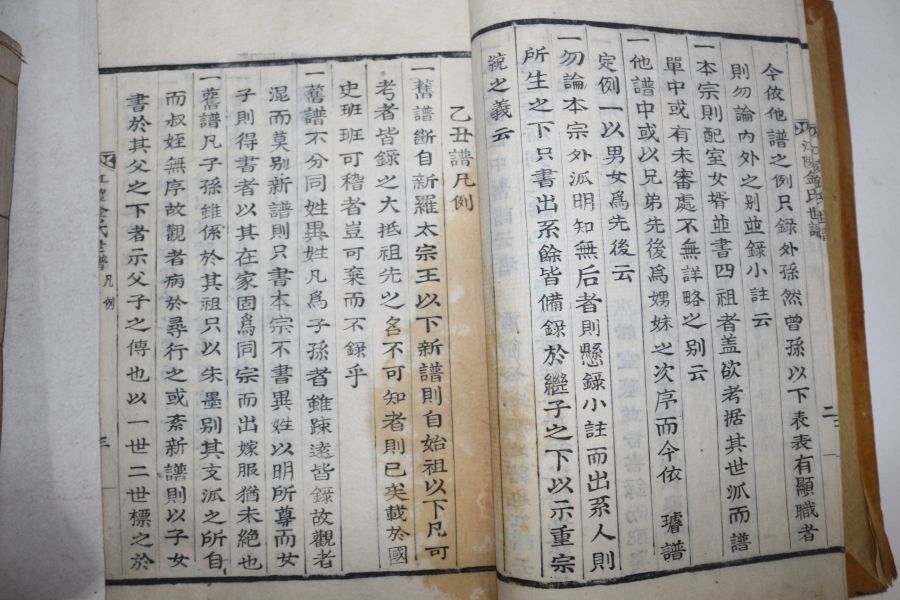 今依他譜之例只録外孫然曾孫以下表表有顯職者
則勿論內外之别並録小註云
一本宗則配室女婿並書四祖者盖欲考据其世派而譜
單中或有未審處不無詳略之别云
一他譜中或以兄弟先後爲娚妹之次序而今依 璿譜
定例一以男女爲先後云
一勿論本宗外派明知無后者則懸録小註而出系人則
所生之下只書出系餘皆備録於繼子之下以示重宗
統之義云
乙丑譜凡例
一舊譜断自新羅太宗王以下新譜則自始祖以下凡可
考者皆録之大抵祖先之名不可知者則已矣載於國
史班班可稽者豈可棄而不録乎
一舊譜不分同姓異姓凡爲子孫者雖踈逺皆録故觀者
混而莫别新譜則只書本宗不書異姓以明所尊而女
子則得書者以其在家固爲同宗而出嫁服猶未絶也
一舊譜凡子孫雖係於其祖只以朱墨别其支派之所自
而叔姪無序故觀者病於尋行之或紊新譜則以子女
書於其父之下者示父子之傳也以一世二世標之於
凡例
三